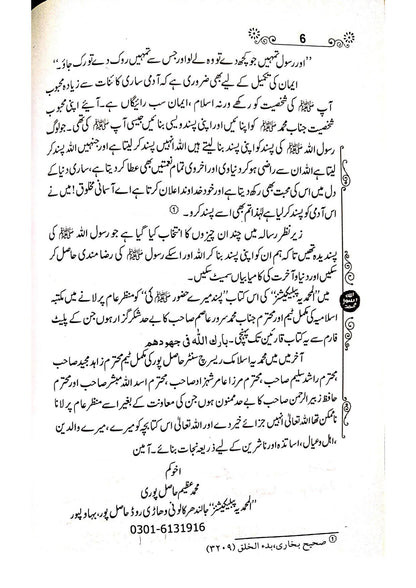 6
"اور رسول تمہیں جو کچھ دے تو وہ لے لو اور جس سے تمہیں روک دے تو رک جاؤ۔"
ایمان کی تکمیل کے لیے بھی ضروری ہے کہ آدمی ساری کائنات سے زیادہ محبوب
آپ ﷺ کی شخصیت کو رکھے ورنہ اسلام، ایمان سب رائیگاں ہے۔ آیئے اپنی محبوب
شخصیت جناب محمد ﷺ کو اپنائیں اور اپنی پسند ویسی بنائیں جیسی آپ ﷺ کی تھی۔ جو لوگ
رسول اللہ ﷺ کی پسند کو اپنی پسند بنا لیتے ہیں اللہ انہیں پسند کر لیتا ہے اور جنہیں اللہ پسند کر
لیتا ہے اللہ ان سے راضی ہو کر دنیاوی اور اخروی تمام نعمتیں بھی عطا کر دیتا ہے، ساری دنیا کے
دل میں اس کی محبت بھی رکھ دیتا ہے اور خود خداوند اعلان کرتا ہے اے آسمانی مخلوق! میں نے
اس آدمی کو پسند کر لیا ہے لہٰذا تم بھی اسے پسند کرو۔ ①
زیر نظر رسالہ میں چند ان چیزوں کا انتخاب کیا گیا ہے جو رسول اللہ ﷺ کی
پسندیدہ تھیں تاکہ ہم ان کو اپنی پسند بنا کر اللہ اور اسکے رسول کی رضا مندی حاصل کر
سکیں اور دنیا و آخرت کی کامیابیاں سمیٹ سکیں۔
میں "المحمدیہ پبلیکیشنز" کی اس کتاب "پسند میرے حضور ﷺ کی" کو منظر عام پر لانے میں مکتبہ
اسلامیہ کی مکمل ٹیم اور محترم جناب محمد سرور عاصم صاحب کا بے حد شکر گزار ہوں جن کے پلیٹ
فارم سے یہ کتاب قارئین تک پہنچی۔ بارك اللّٰه في جهودهم
آخر میں میں المحمدیہ اسلامک ریسرچ سنٹر حاصل پور کی مکمل ٹیم محترم زاہد مجید صاحب،
محترم راشد سلیم صاحب، محترم مرزا عامر شہزاد صاحب، محترم اسد اللہ مبشر صاحب اور محترم
حافظ زبیر الرحمن صاحب کا بے حد ممنون ہوں جن کی معاونت کے بغیر اسے منظر عام پر لانا
ناممکن تھا اللہ تعالیٰ انہیں جزائے خیر دے اور اللہ تعالیٰ اس کتابچہ کو میرے، میرے والدین،
اہل و عیال، اساتذہ اور ناشرین کے لیے ذریعہ نجات بنائے۔ آمین
اخوکم
محمد عظیم حاصل پوری
"المحمدیہ پبلیکیشنز" جالندھر کالونی وہاڑی روڈ حاصل پور، بہاولپور
0301-6131916
① صحیح بخاری، بدء الخلق (۳۲۰۹)